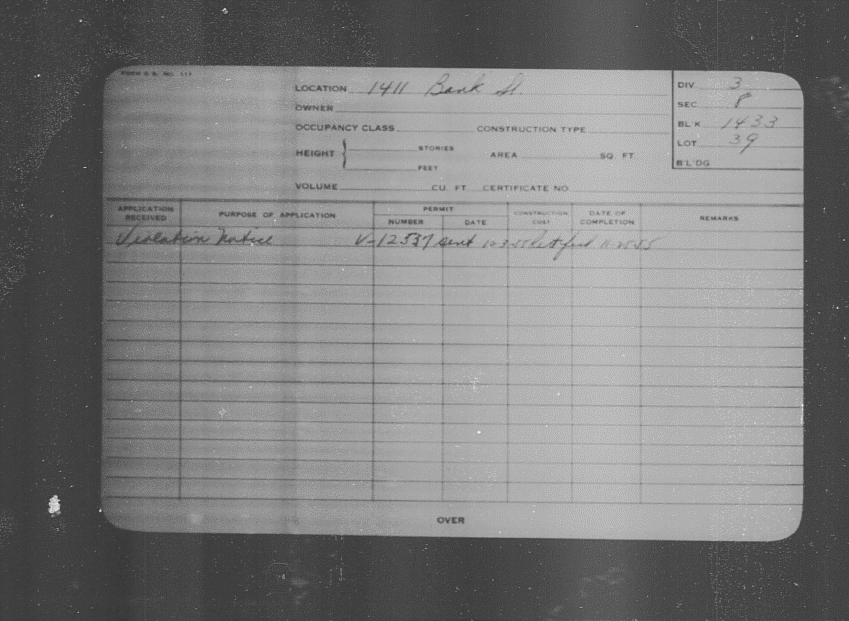 FORM B.B. NO. 111
LOCATION 1411 Bank St.
OWNER
OCCUPANCY CLASS CONSTRUCTION TYPE
HEIGHT { STORIES AREA SQ. FT.
FEET
VOLUME CU. FT. CERTIFICATE NO.
DIV. 3
SEC. 8
BL'K 1433
LOT 39
B'L'DG
APPLICATION RECEIVED PURPOSE OF APPLICATION PERMIT NUMBER DATE CONSTRUCTION COST DATE OF COMPLETION REMARKS
Violation Notice V-12537 sent 11-25-55
OVER